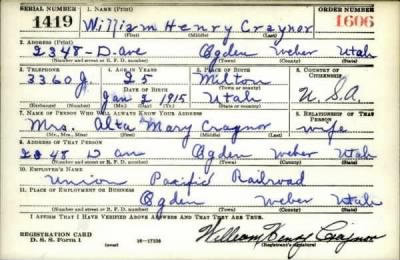 SERIAL NUMBER 1. NAME (Print) ORDER NUMBER
1419 William Henry Craynor 1606
(First) (Middle) (Last)
2. ADDRESS (Print)
2348-D-ave Ogden Weber Utah
(Number and street or R. F. D. number) (Town) (County) (State)
3. TELEPHONE 4. AGE IN YEARS 5. PLACE OF BIRTH 6. COUNTRY OF CITIZENSHIP
3360J. 25 Milton
DATE OF BIRTH (Town or county)
Jan 8 1915 Utah U.S.A.
(Exchange) (Number) (Mo.) (Day) (Yr.) (State or country)
7. NAME OF PERSON WHO WILL ALWAYS KNOW YOUR ADDRESS 8. RELATIONSHIP OF THAT PERSON
Mrs. Alta Mary Craynor wife
(Mr., Mrs., Miss) (First) (Middle) (Last)
9. ADDRESS OF THAT PERSON
2348 D ave Ogden Weber Utah
(Number and street or R. F. D. number) (Town) (County) (State)
10. EMPLOYER'S NAME
Union Pacific Railroad
11. PLACE OF EMPLOYMENT OR BUSINESS
Ogden Weber Utah
(Number and street or R. F. D. number) (Town) (County) (State)
I AFFIRM THAT I HAVE VERIFIED ABOVE ANSWERS AND THAT THEY ARE TRUE.
REGISTRATION CARD
D. S. S. Form 1 16-17105 William Henry Craynor
(Registrant's signature)